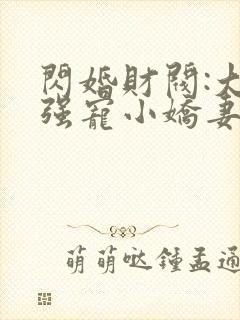 閃婚財閥:大
强寵小嬌妻
萌萌哒鍾孟通